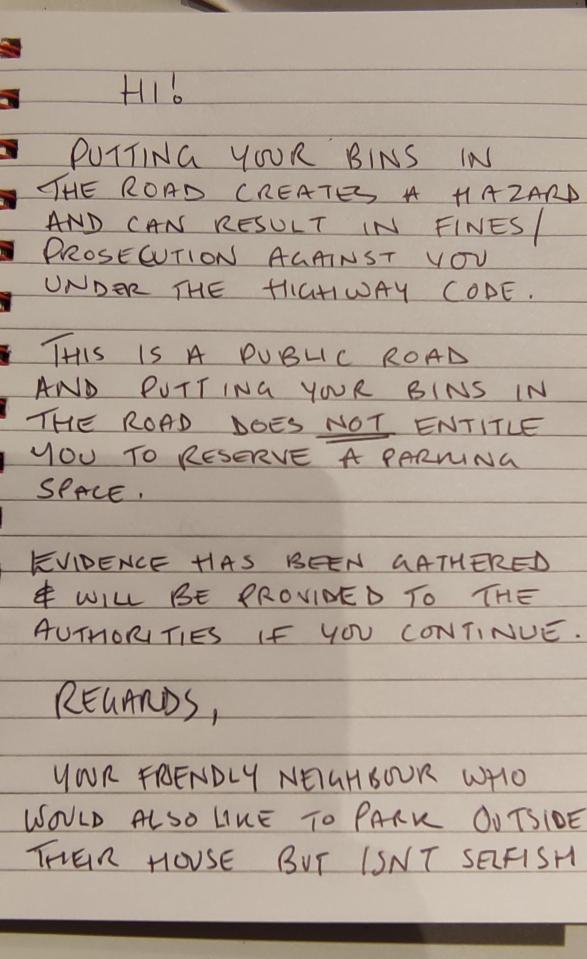 HI!
PUTTING YOUR BINS IN
THE ROAD CREATES A HAZARD
AND CAN RESULT IN FINES/
PROSECUTION AGAINST YOU
UNDER THE HIGHWAY CODE.
THIS IS A PUBLIC ROAD
AND PUTTING YOUR BINS IN
THE ROAD DOES NOT ENTITLE
YOU TO RESERVE A PARKING
SPACE.
EVIDENCE HAS BEEN GATHERED
& WILL BE PROVIDED TO THE
AUTHORITIES IF YOU CONTINUE.
REGARDS,
YOUR FRIENDLY NEIGHBOUR WHO
WOULD ALSO LIKE TO PARK OUTSIDE
THEIR HOUSE BUT ISNT SELFISH